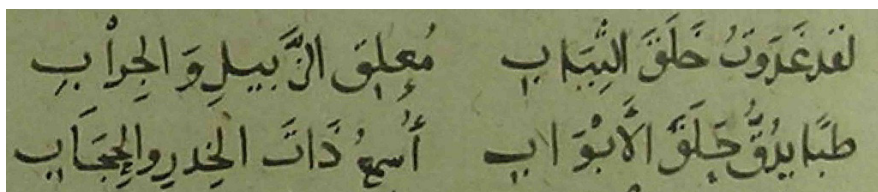 لقد غَدَوتُ خَلَقَ الثِيَابِ مُعلِقَ الزَّبيلِ وَالجِرابِ
طبًا بدُقِّ حِلَقَ الأَبْوَابِ أُسمِعُ ذَاتَ الخِدرِ والحِجَابِ